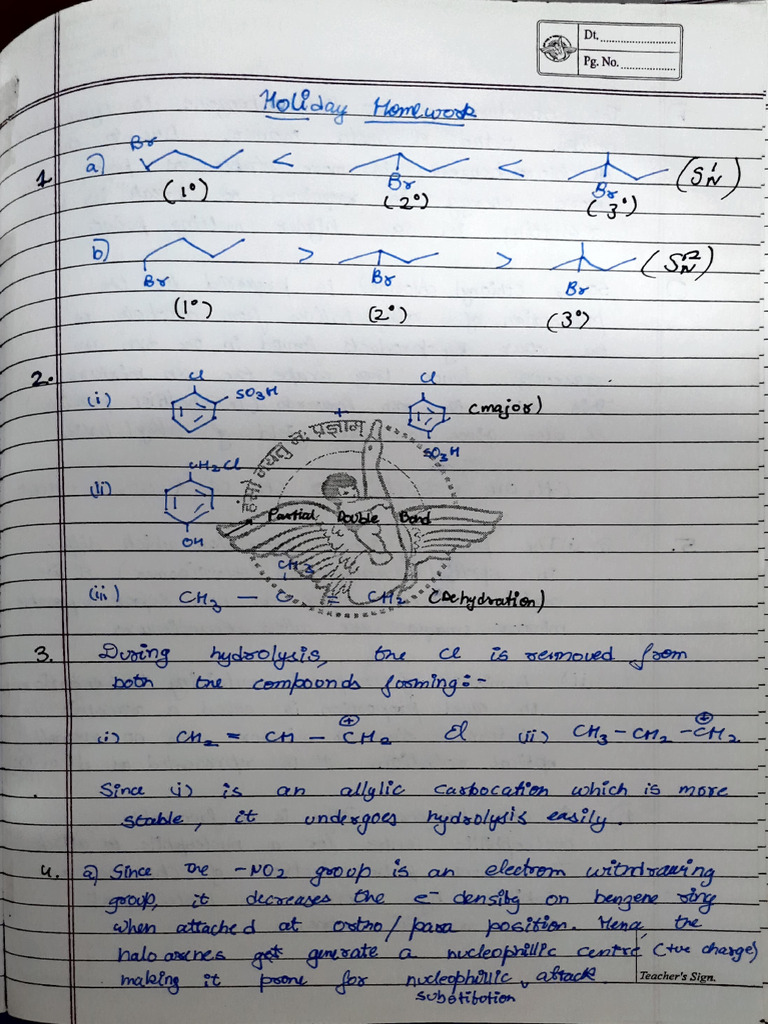 Dt.
Pg. No.
Holiday Homework
1. a) Br < Br < Br (SN1)
(1°) (2°) (3°)
b) Br > Br > Br (SN2)
(1°) (2°) (3°)
2.
(i) Cl SO3H + Cl SO3H (major)
हंसो नयतु नः प्रज्ञाम्
(ii) CH2Cl OH Partial Double Bond
CH3
(iii) CH3 — C = CH2 (Dehydration)
3. During hydrolysis, the Cl is removed from
both the compounds forming:-
(i) CH2 = CH — CH2 ⊕ & (ii) CH3 — CH2 — CH2 ⊕
Since (i) is an allylic carbocation which is more
stable, it undergoes hydrolysis easily.
4. a) Since the -NO2 group is an electrom withdrawing
group, it decreases the e- density on benzene ring
when attached at ortho/para position. Hence the
haloarenes get generate a nucleophillic centre (+ve charge)
making it prone for nucleophillic attack
substitution
Teacher's Sign.